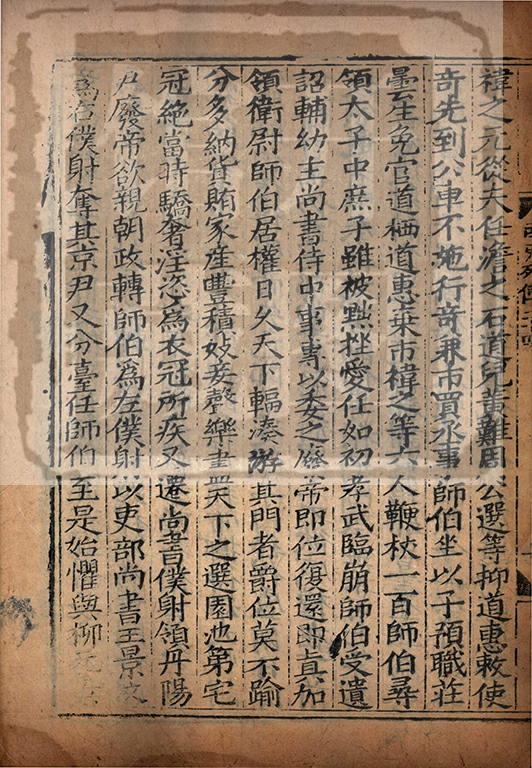 禕之元從夫任澹之石道兒黃難周公選等抑道惠敕使
奇先到公車不施行奇兼市買丞事師伯坐以子預職莊
曇生免官道栖道惠棄市禕之等六人鞭杖一百師伯尋
領太子中庶子雖被黜挫愛任如初孝武臨崩師伯受遺
詔輔幼主尚書侍中事專以委之廢帝即位復還即真加
領衛尉師伯居權日久天下輻湊游其門者爵位莫不踰
分多納貨賄家產豐積妓妾聲樂盡天下之選園池第宅
冠絕當時驕奢淫恣為衣冠所疾又遷尚書僕射領丹陽
尹廢帝欲親朝政轉師伯為左僕射以吏部尚書王景文
為右僕射奪其京尹又分臺任師伯至是始懼與柳元景